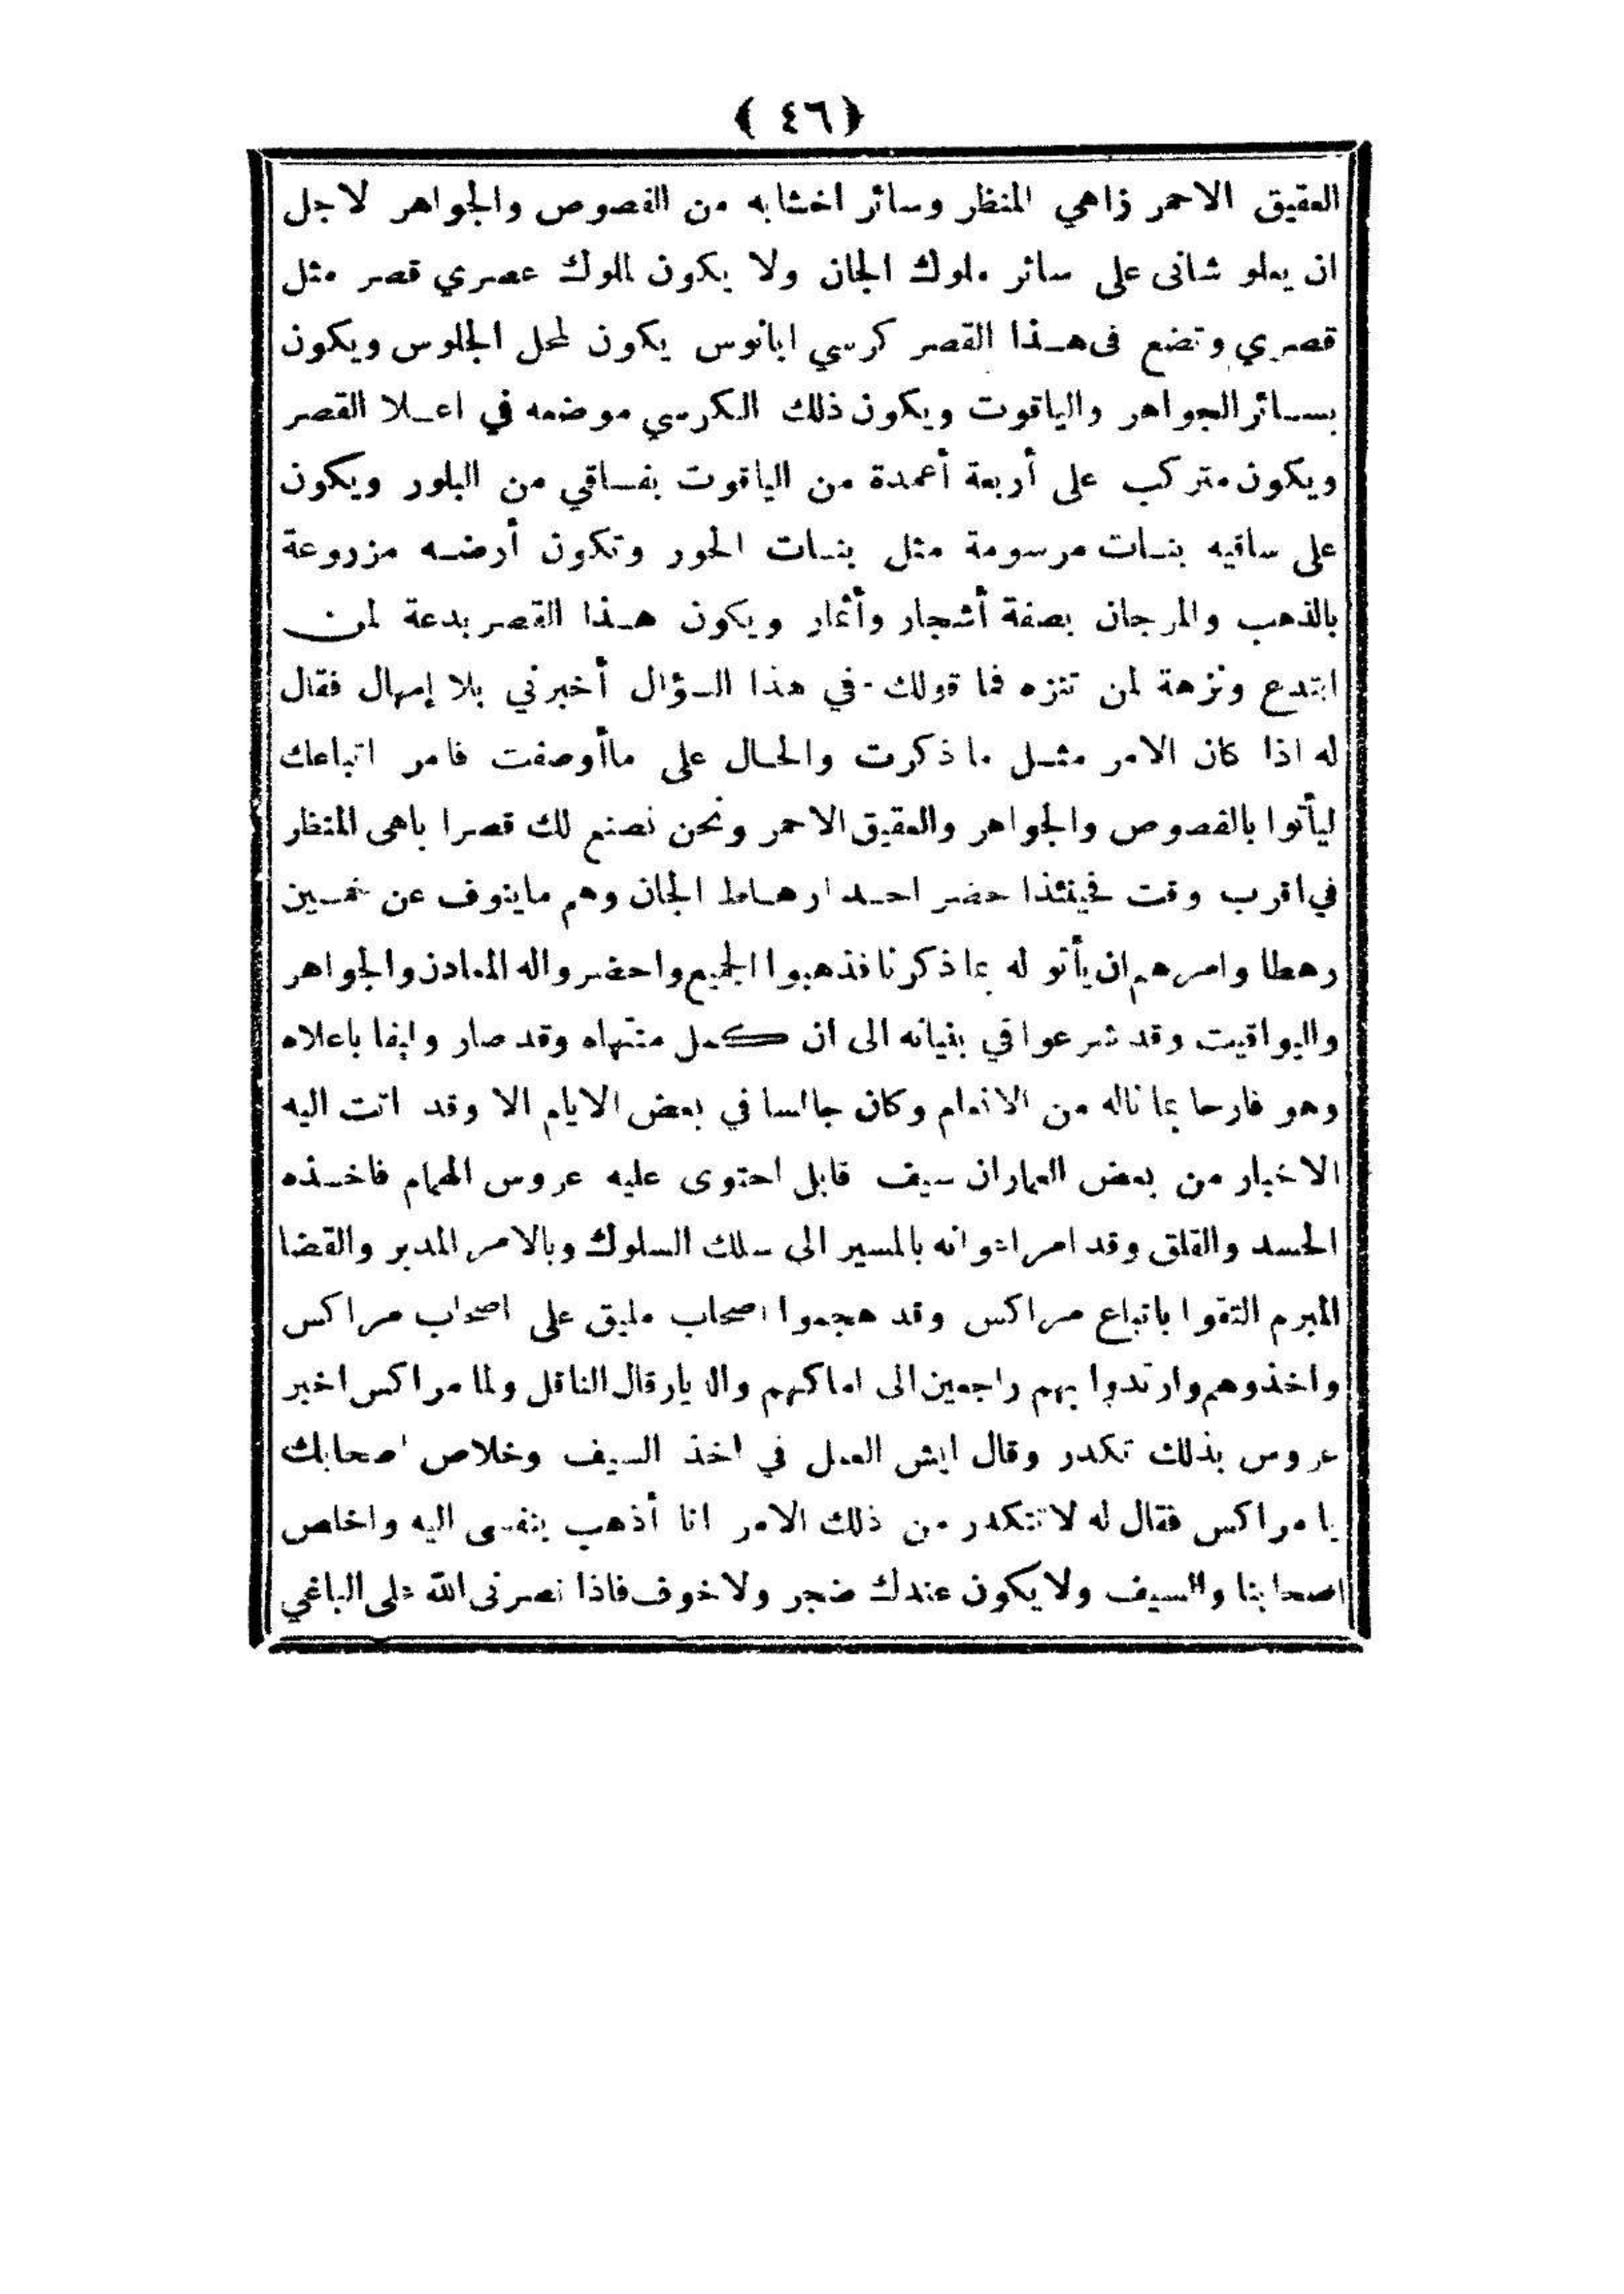 ﴿ ٤٦ ﴾
العقيق الاحمر زاهي المنظر وسائر اخشابه من الفصوص والجواهر لاجل
ان يعلو شانى على سائر ملوك الجان ولا يكون لملوك عصري قصر مثل
قصري وتضع فى هذا القصر كرسي ابانوس يكون لمحل الجلوس ويكون
بسائر الجواهر والياقوت ويكون ذلك الكرسي موضعه في اعلا القصر
ويكون متركب على أربعة أعمدة من الياقوت بفساقي من البلور ويكون
على ساقيه بنات مرسومة مثل بنات الحور وتكون أرضه مزروعة
بالذهب والمرجان بصفة أشجار وأثمار ويكون هذا القصر بدعة لمن
ابتدع ونزهة لمن تنزه فما قولك في هذا السؤال أخبرني بلا إمهال فقال
له اذا كان الامر مثل ما ذكرت والحال على ماأوصفت فامر اتباعك
ليأتوا بالفصوص والجواهر والعقيق الاحمر ونحن نصنع لك قصرا باهى المنظر
في اقرب وقت فحينئذا حضر احد ارهاط الجان وهم ماينوف عن خمسين
رهطا وامرهم ان يأتو له بما ذكرنا فذهبوا الجميع واحضروا له المعادن والجواهر
واليواقيت وقد شرعوا في بنيانه الى ان كمل منتهاه وقد صار وايفا باعلاه
وهو فارحا بما ناله من الانعام وكان جالسا في بعض الايام الا وقد اتت اليه
الاخبار من بعض العمار ان سيف قابل احتوى عليه عروس الهمام فاخذه
الحسد والقلق وقد امر اعوانه بالمسير الى سلك السلوك وبالامر المدبر والقضا
المبرم التقوا باتباع مراكس وقد هجموا اصحاب مليق على اصحاب مراكس
واخذوهم وارتدوا بهم راجعين الى اماكنهم والديار قال الناقل ولما مراكس اخبر
عروس بذلك تكدر وقال ايش العمل في اخذ السيف وخلاص اصحابك
يا مراكس فقال له لا تتكدر من ذلك الامر انا أذهب بنفسى اليه واخلص
اصحابنا والسيف ولا يكون عندك ضجر ولا خوف فاذا نصرنى الله على الباغي